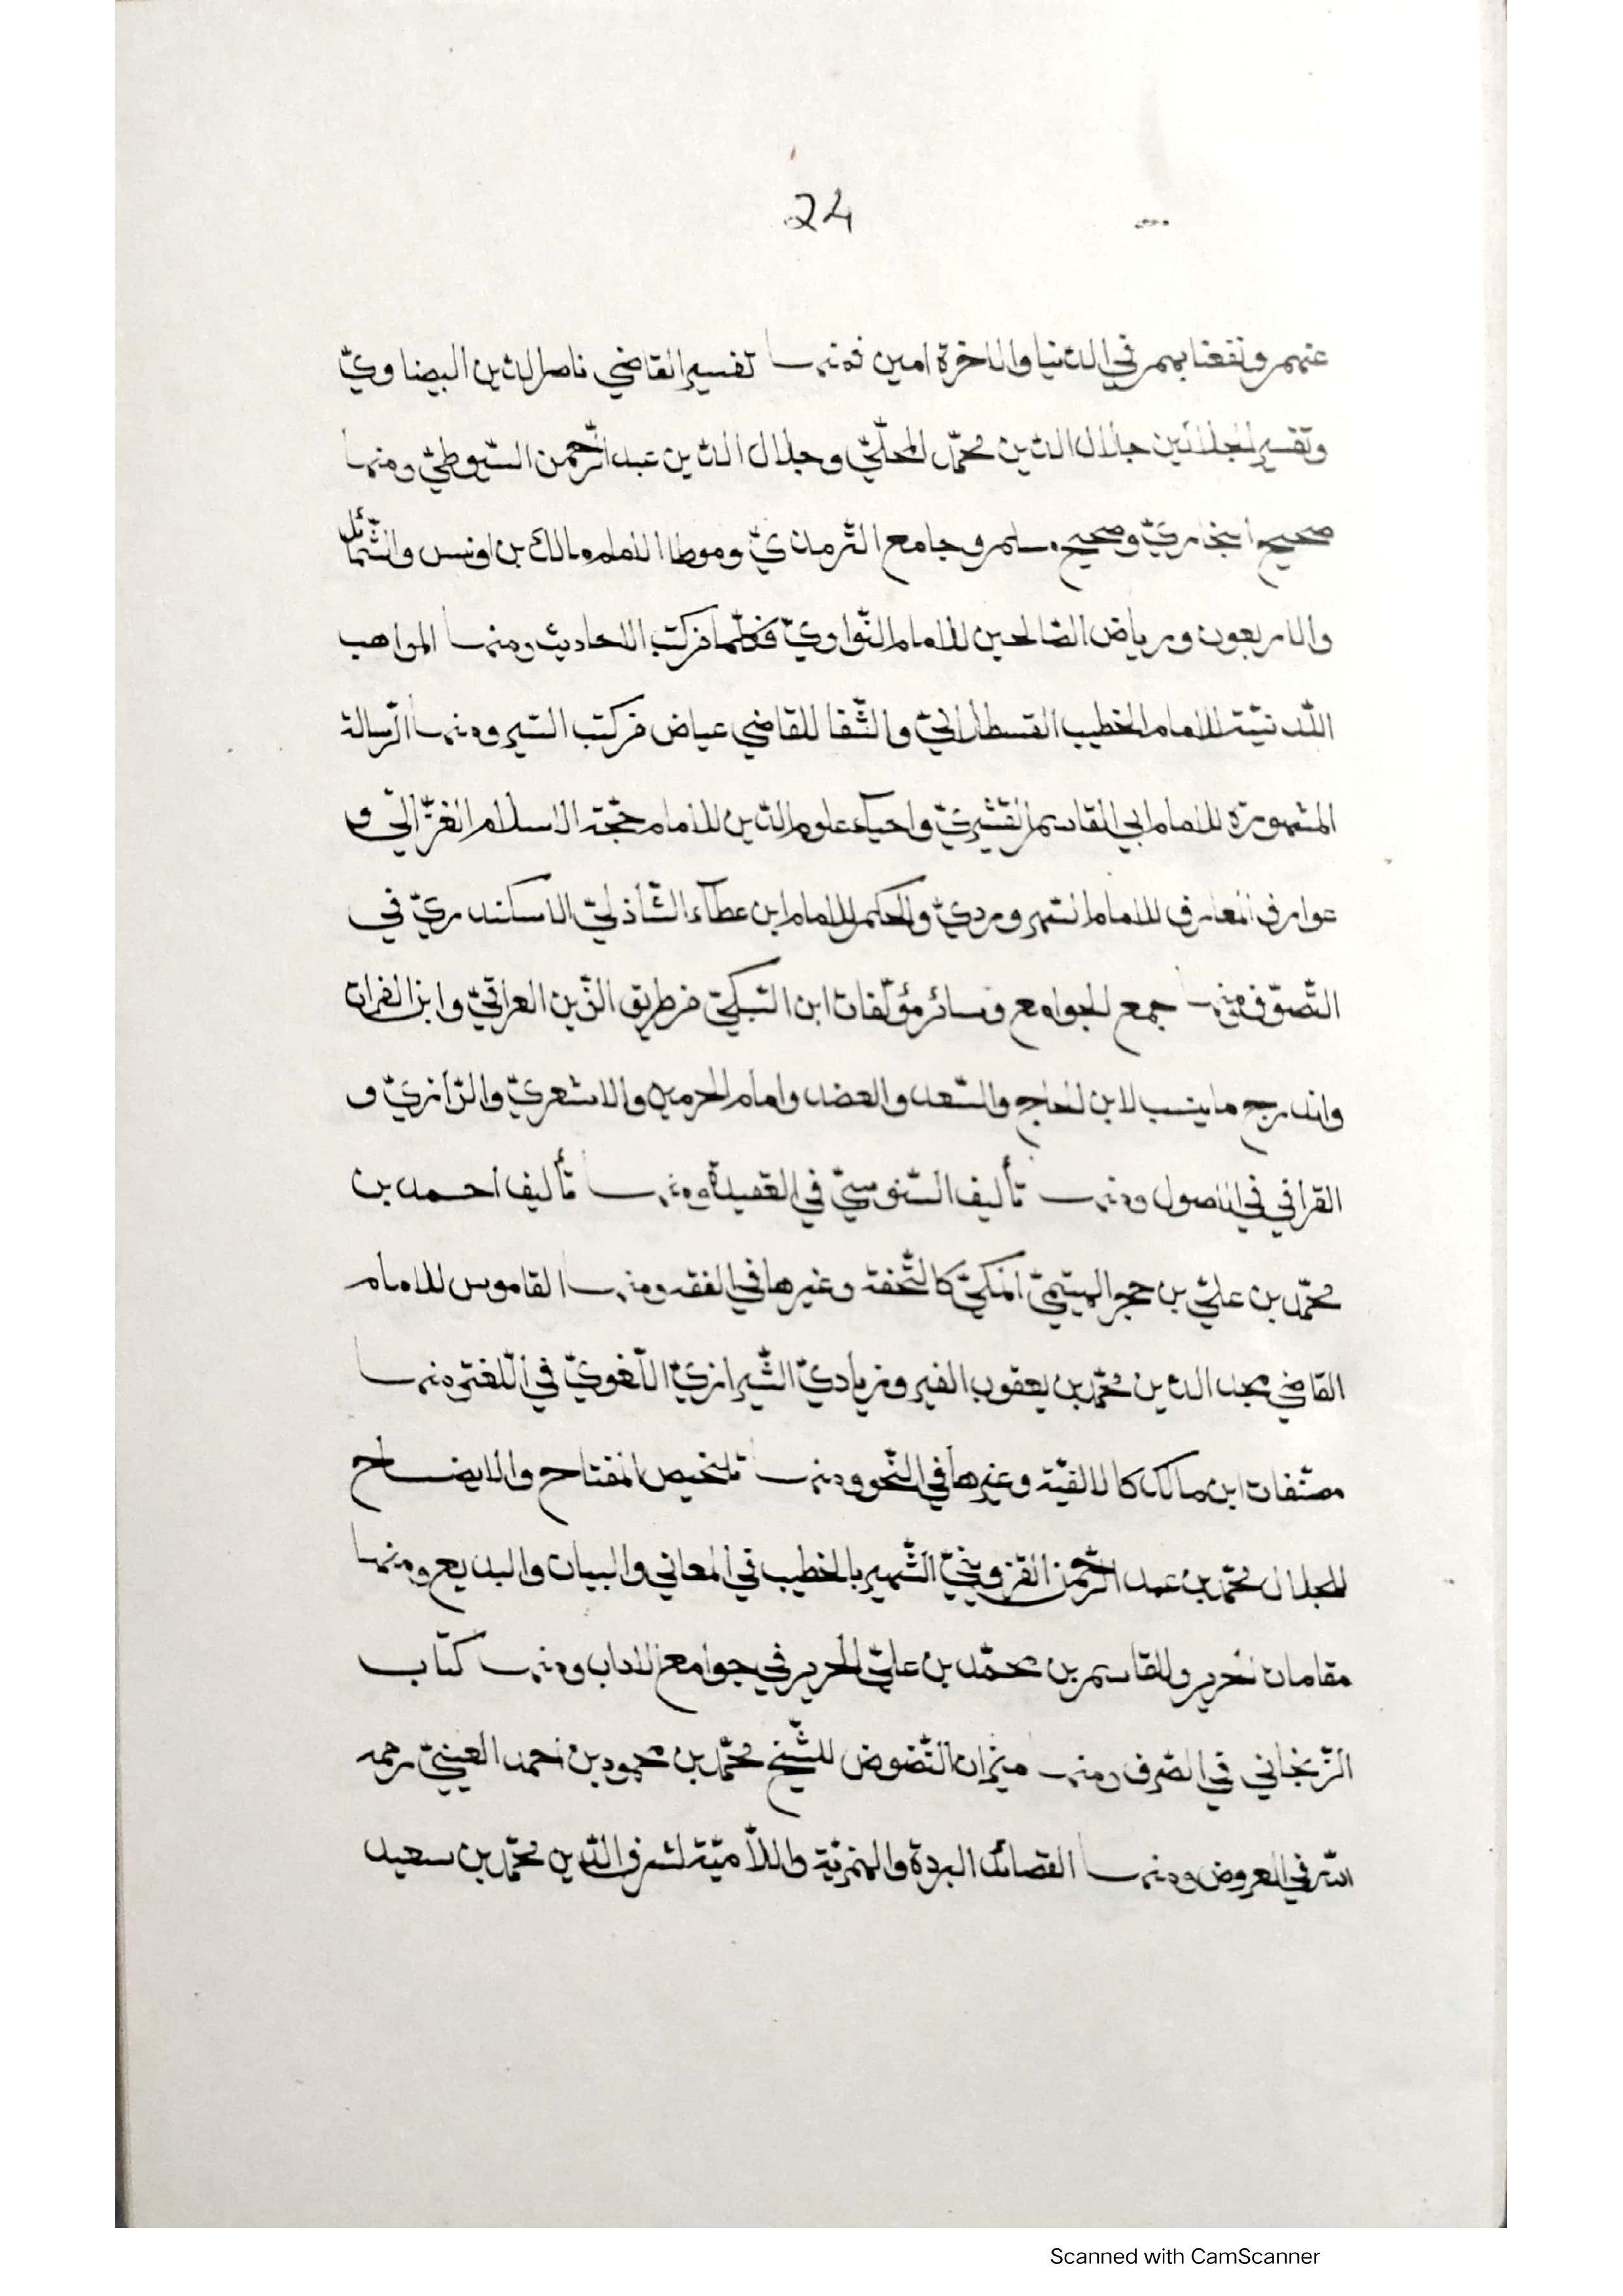 24
عنهم ونفعنا بهم في الدّنيا والاخرة امين فمنها تفسير القاضي ناصر الدّين البيضاويّ
وتفسير الجلالين جلال الدّين محمّد المحلّيّ وجلال الدّين عبد الرّحمن السّيوطيّ ومنها
صحيح البخاريّ وصحيح مسلم وجامع التّرمذيّ وموطا الامام مالك بن اونس والشّمائل
والاربعون ورياض الصّالحين للامام النّواويّ فكلّها من كتب الاحاديث ومنها المواهب
اللّدنيّة للامام الخطيب القسطلّانيّ والشّفا للقاضي عياض من كتب السّير ومنها الرّسالة
المشهورة للامام ابي القاسم القشيريّ واحياء علوم الدّين للامام حجّة الاسلام الغزّاليّ و
عوارف المعارف للامام السّهرورديّ والحكم للامام ابن عطاء الشّاذليّ الاسكندريّ في
التّصوّف ومنها جمع الجوامع وسائر مؤلّفات ابن السّبكيّ من طريق الزّين العراقيّ وابن الفرات
واندرج ما ينسب لابن الحاجح والسّعد والعضد وامام الحرمين والاشعريّ والرّازيّ و
القرافي في الاصول ومنها تأليف السّنوسيّ في العقيدة ومنها تأليف احمد بن
محمّد بن عليّ بن حجر الهيتميّ المكيّ كالتّحفة وغيرها في الفقه ومنها القاموس للامام
القاضي مجد الدّين محمّد بن يعقوب الفيروزياديّ الشّيرازيّ اللّغويّ في اللّغة ومنها
مصنّفات ابن مالك كالالفيّة وغيرها في النّحو ومنها تلخيص المفتاح والايضاح
للجلال محمّد بن عبد الرّحمن القزوينيّ الشّهير بالخطيب في المعاني والبيان والبديع ومنها
مقامات الحريري للقاسم بن محمّد بن عليّ الحرير في جوامع الاداب ومنها كتاب
الزّنجاني في الصّرف ومنها ميزان النّضوض للشّيخ محمّد بن محمود بن احمد العينيّ رحمه
الله في العروض ومنها القصائد البردة والهمزيّة واللّاميّة لشرف الدّين محمّد بن سعيد
Scanned with CamScanner